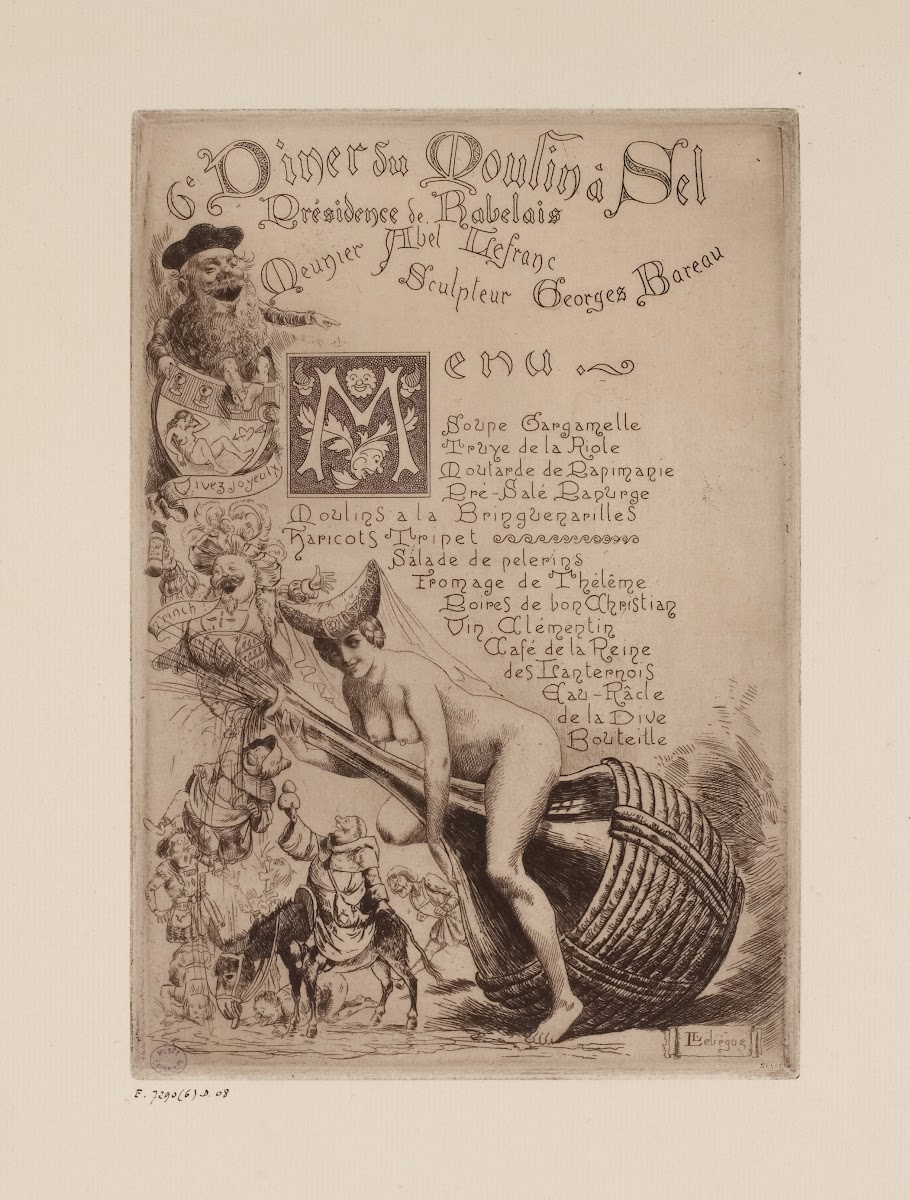 6e Diner du Moulin à Sel
Présidence de Rabelais
Meunier Abel Lefranc
Sculpteur Georges Bareau
Menu
Soupe Gargamelle
Truye de la Riole
Moutarde de Papimanie
Pré-Salé Panurge
Moulins a la Bringuenarilles
Haricots Tripet
Salade de pelerins
Fromage de Thélême
Poires de bon Christian
Vin Clémentin
Café de la Reine
des Lanternois
Eau-Râcle
de la Dive
Bouteille
Vivez Joyeux
Trinch
LLebégue
E. 7290(6).D.08